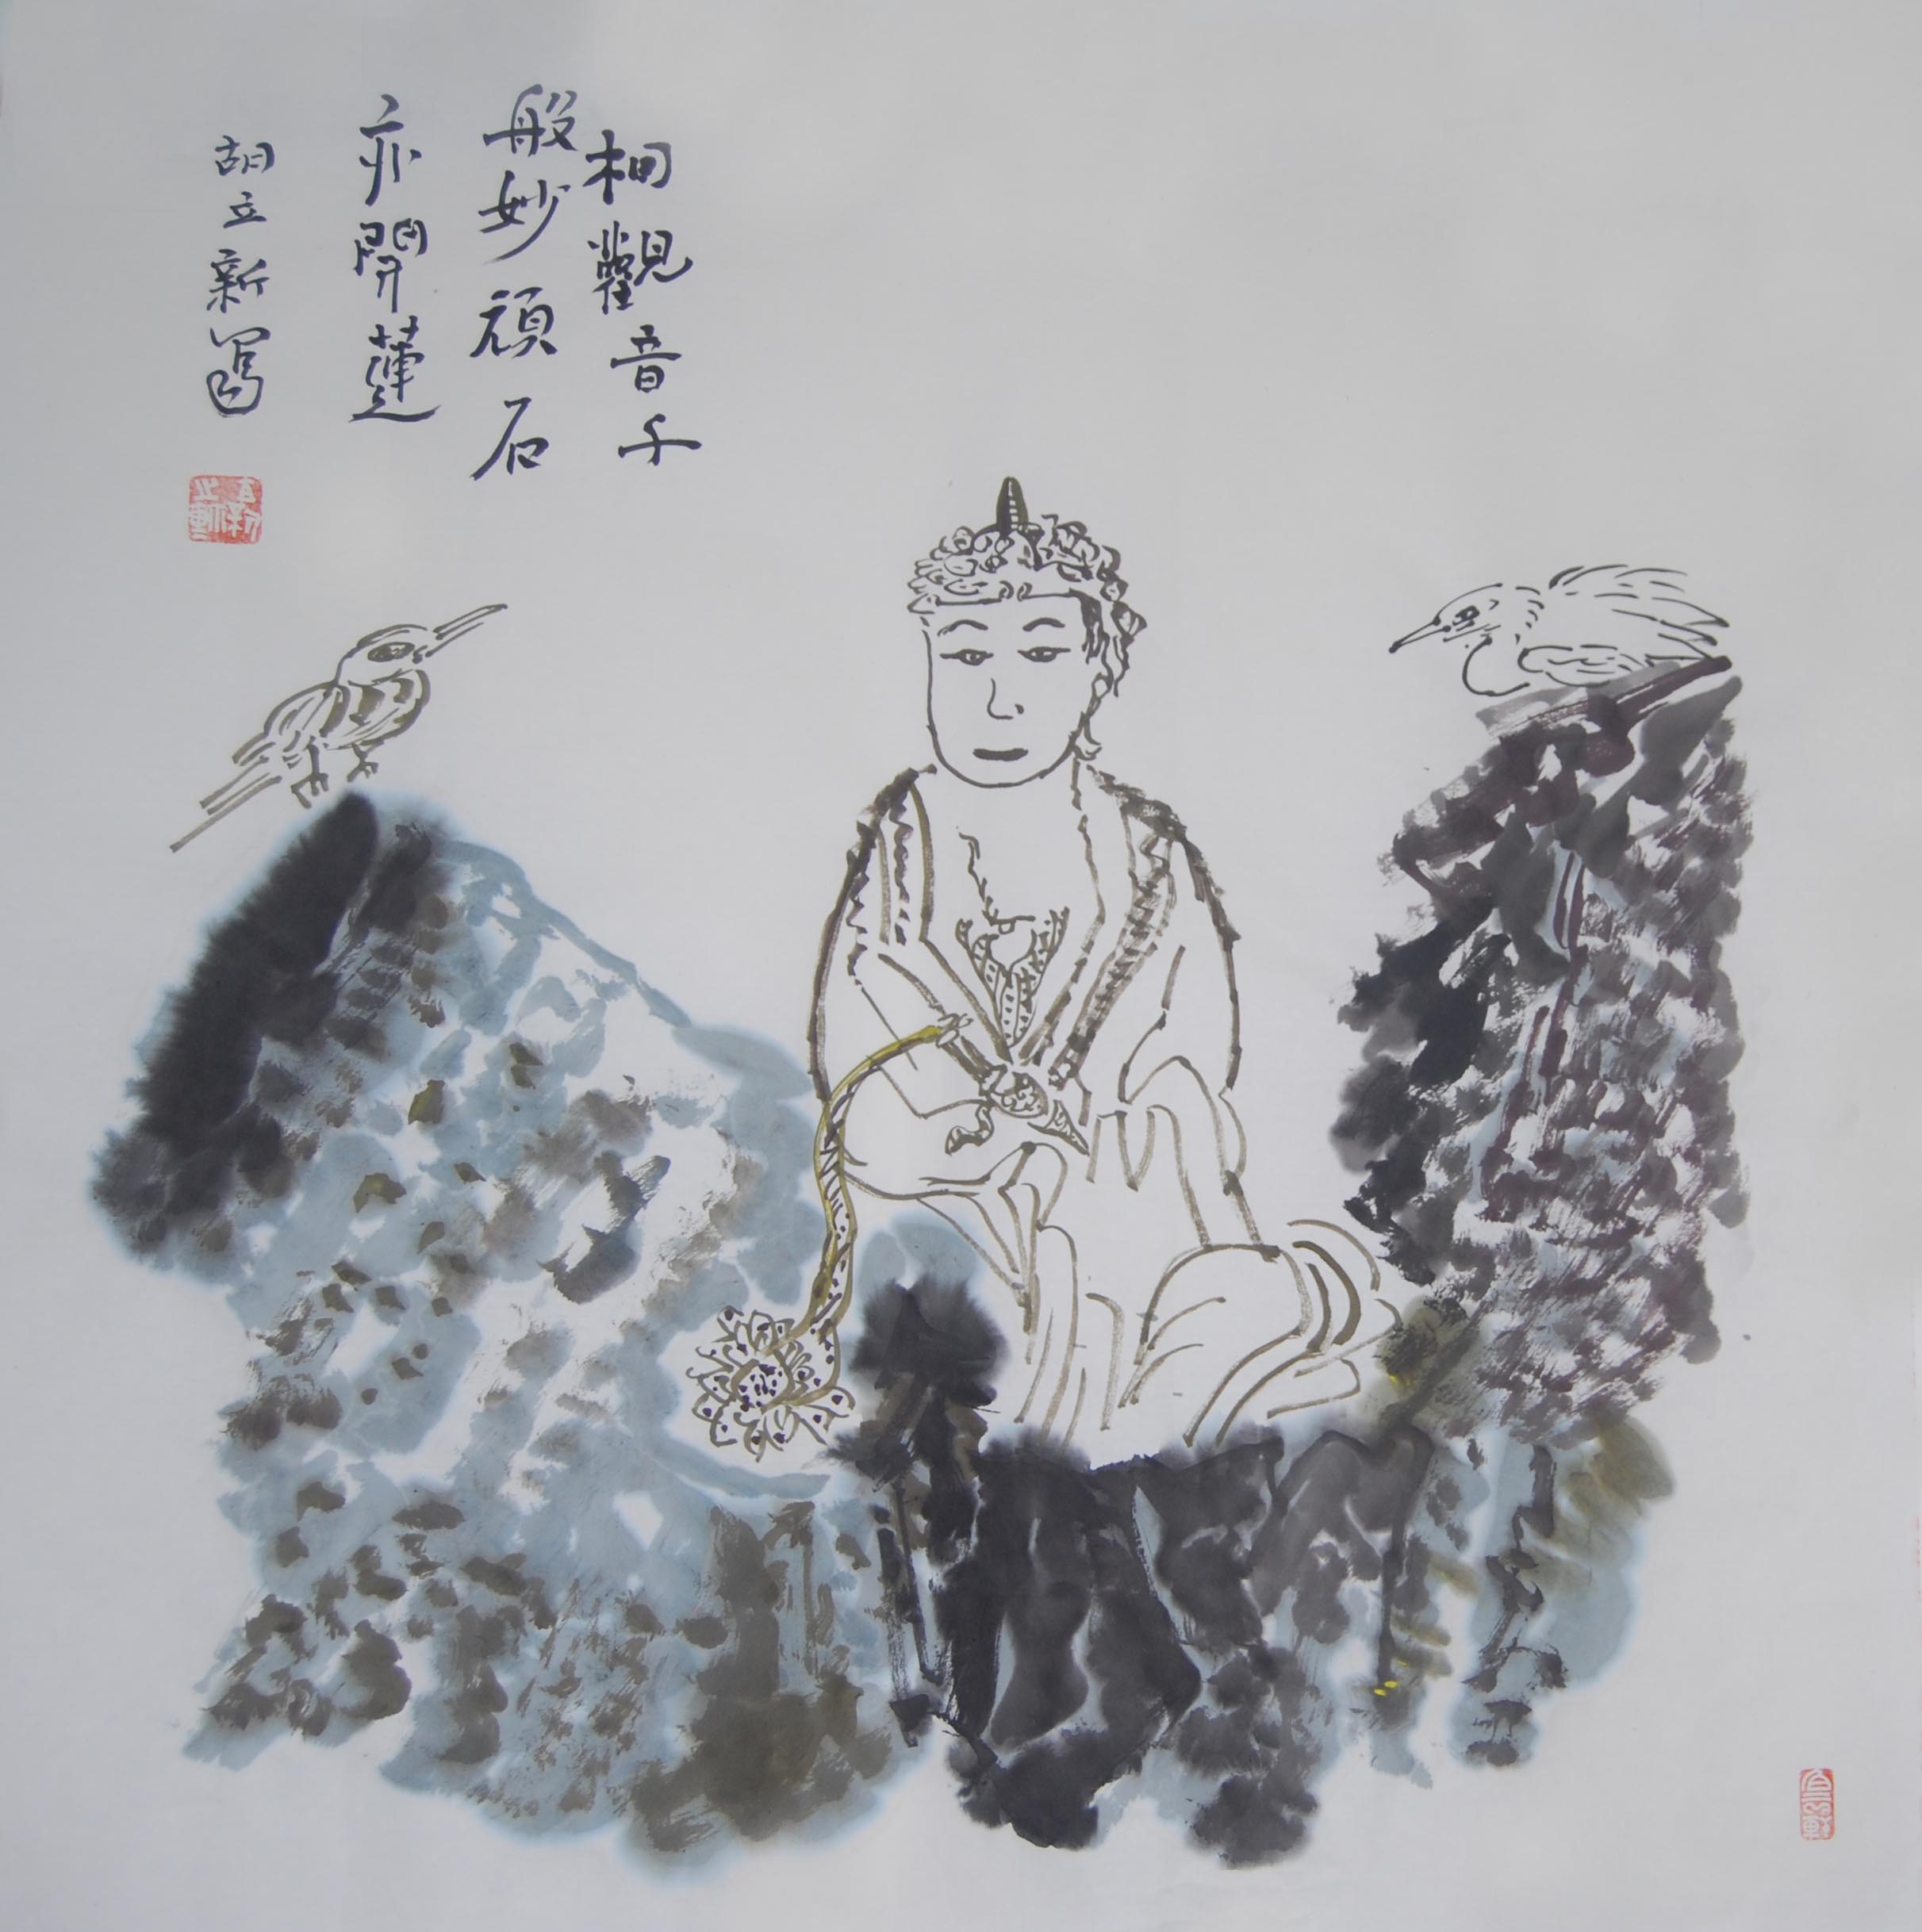 細觀音千
般妙頑石
亦開蓮
胡立新寫